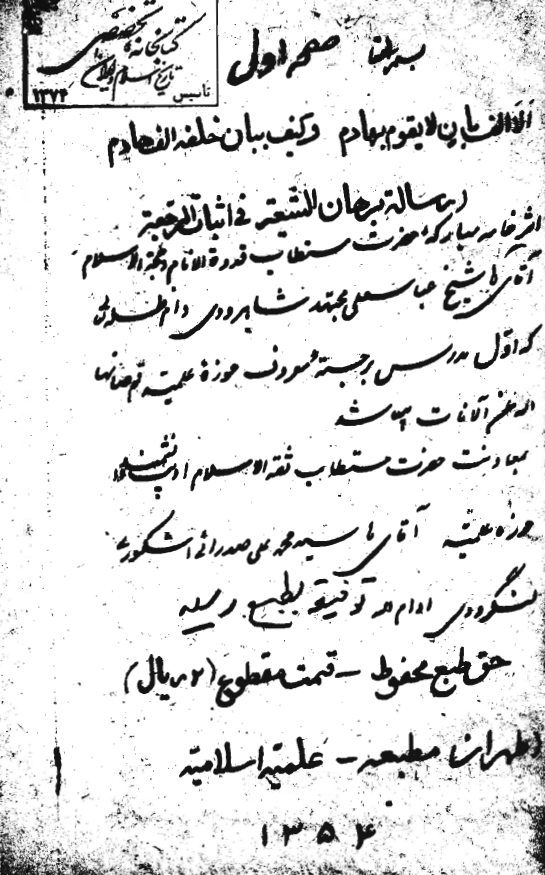 کتابخانه تخصصی
تاریخ اسلام و ایران
تأسیس ۱۳۷۴
صفحه اولی
الا الف بان لا یقوم بهادم وکیف ببان خلفه الف هادم
رسالة برهان الشیعه فی اثبات الرجعة
اثر خامه مبارکه حضرت مستطاب قدوة الانام و حجة الاسلام
آقای شیخ عباسعلی مجتهد شاهرودی دام ظله
که اوّل مدرس برجسته و معروف حوزهٔ علمیّه قم صانها
الله عن الآفات میباشد
بمعاونت حضرت مستطاب ثقة الاسلام ادیب دانشمند
حوزه علمیّه آقای سید محمد علی صدرائی اشکوری
لنگرودی ادام الله توفیقه بطبع رسید
حق طبع محفوظ – قیمت مقطوع (۲ ریال)
طهران مطبعه – علمیّه اسلامیّه
۱۳۵۴